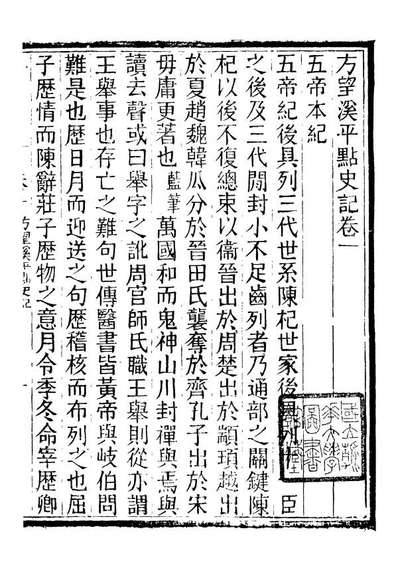 方望溪平點史記卷一
五帝本紀
五帝紀後具列三代世系陳杞世家後具列十 臣
之後及三代閒封小不足齒列者乃通部之關鍵陳
杞以後不復總束以衞晉出於周楚出於顓頊越出
於夏趙魏韓瓜分於晉田氏襲奪於齊孔子出於宋
毋庸更著也 藍筆 萬國和而鬼神山川封禪與焉與
讀去聲或曰舉字之訛周官師氏職王舉則從亦謂
王舉事也存亡之難句世傳醫書皆黃帝與岐伯問
難是也歴日月而迎送之句歴稽核而布列之也屈
子歴情而陳辭莊子歴物之意月令季冬命宰歴卿